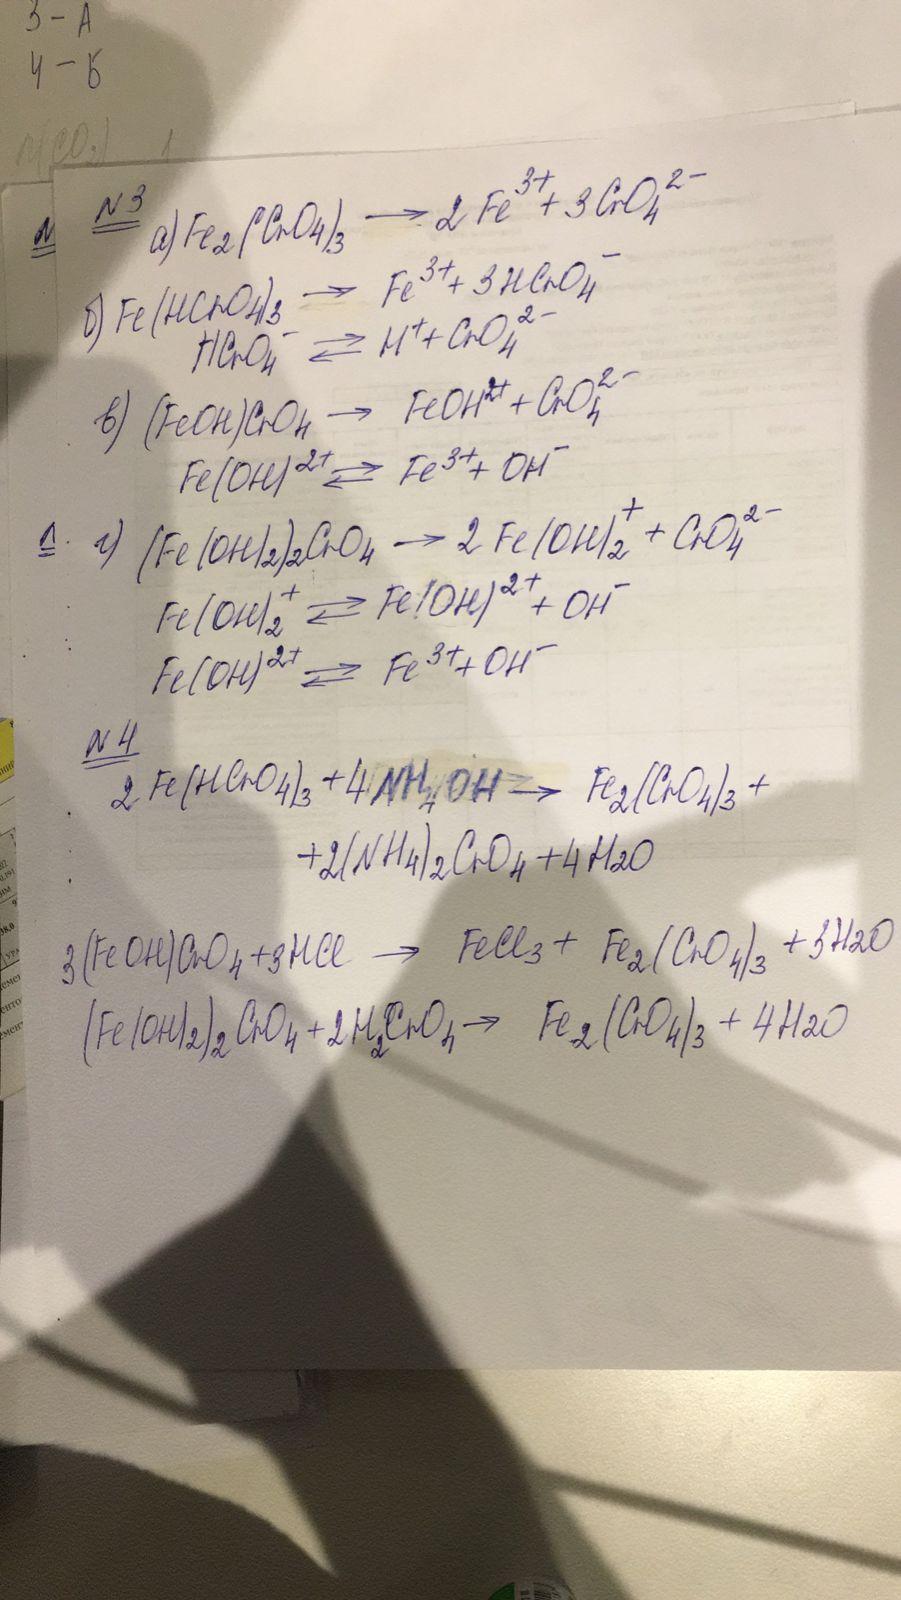 3 - А
4 - Б
N(CO2) 1
N
N3
а) Fe2(CrO4)3 → 2 Fe3+ + 3CrO4 2−
б) Fe(HCrO4)3 → Fe3+ + 3HCrO4−
HCrO4− ⇄ H+ + CrO4 2−
в) (FeOH)CrO4 → FeOH2+ + CrO4 2−
Fe(OH)2+ ⇄ Fe3+ + OH−
1.
г) (Fe(OH)2)2CrO4 → 2 Fe(OH)2+ + CrO4 2−
Fe(OH)2+ ⇄ Fe(OH)2+ + OH−
Fe(OH)2+ ⇄ Fe3+ + OH−
N4
2 Fe(HCrO4)3 + 4NH4OH → Fe2(CrO4)3 +
+2(NH4)2CrO4 + 4H2O
3(FeOH)CrO4 + 3HCl → FeCl3 + Fe2(CrO4)3 + 3H2O
(Fe(OH)2)2CrO4 + 2H2CrO4 → Fe2(CrO4)3 + 4H2O